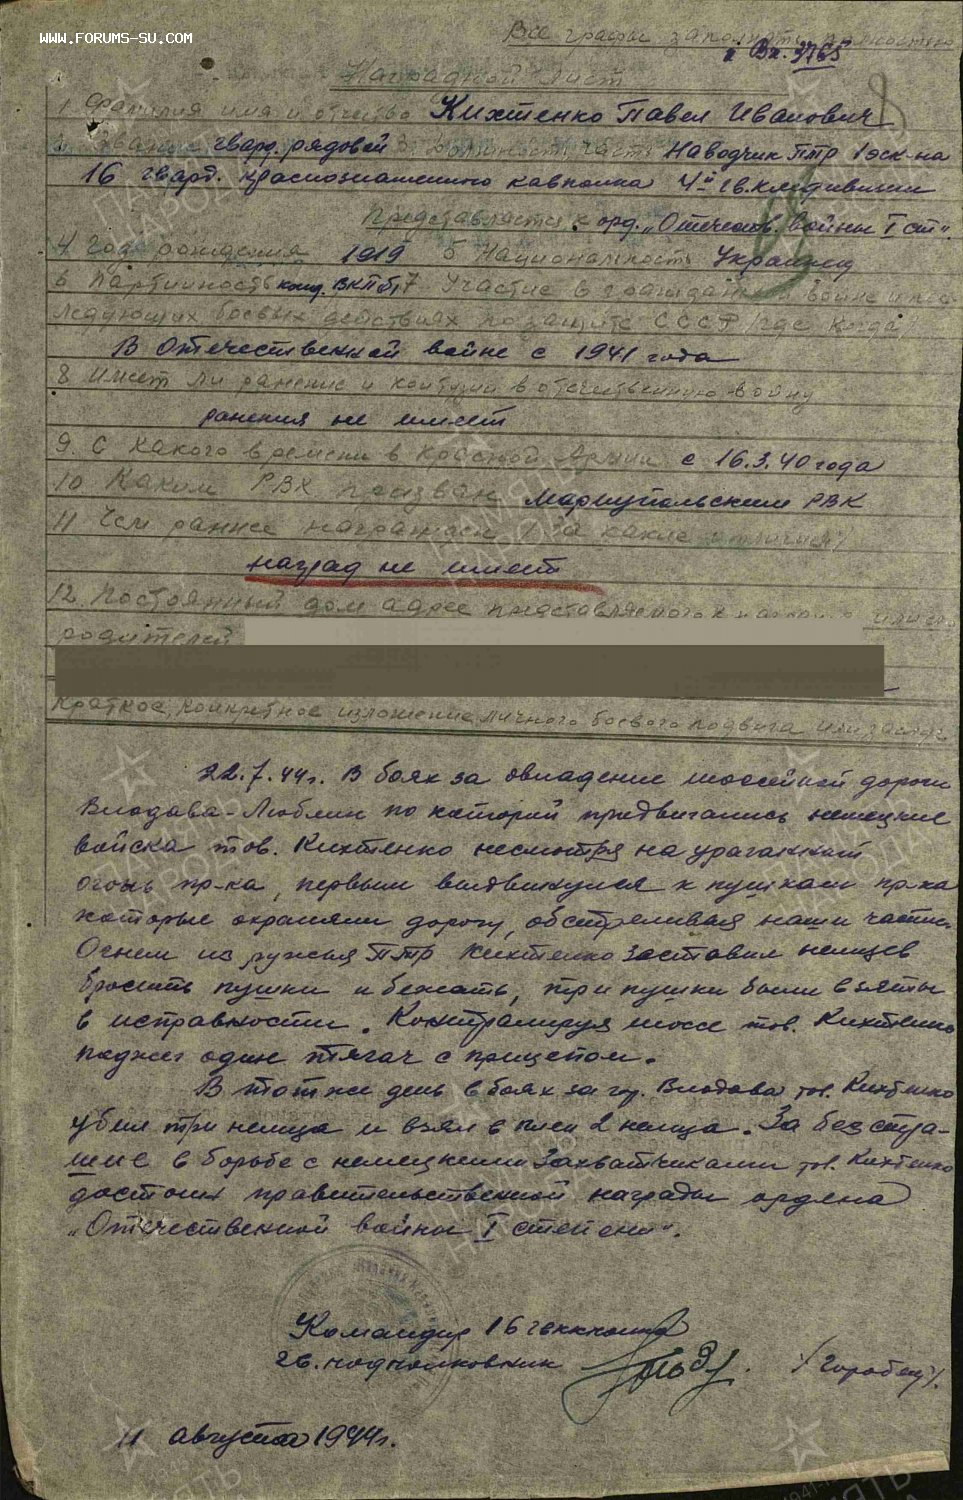 WWW.FORUMS-SU.COM
Все графы заполнять полностью
Вх. 3765
Наградной лист
1 Фамилия имя и отчество Кихтенко Павел Иванович
2 Звание гвард. рядовой 3 должность часть Наводчик ПТР 1 эск-на
16 гвард. краснознаменного кавполка 4й гв. кав. дивизии
Представляется к орд. „Отечеств. войны I ст".
4 Год рождения 1919 5 Национальность Украинец
6 Партийность канд. ВКП(б) 7 Участие в гражданской войне и пос-
ледующих боевых действиях по защите СССР /где когда
В Отечественной войне с 1941 года
8 Имеет ли ранение и контузии в отечественную войну
ранения не имеет
9. С какого времени в Красной Армии с 16.3.40 года
10 Каким РВК призван Мариупольским РВК
11 Чем раннее награжден /за какие отличия/
наград не имеет
12. Постоянный дом адрес представляемого к награде или его
родителей
Краткое, конкретное изложение личного боевого подвига или заслуг
22.7.44г. В боях за овладение шоссейной дороги
Влодава-Люблин по которой придвигались немецкие
войска тов. Кихтенко несмотря на ураганный
огонь пр-ка, первым выдвинулся к пушкам пр-ка
которые охраняли дорогу, обстреливая наши части.
Огнем из ружья ПТР Кихтенко заставил немцев
бросить пушки и бежать, три пушки были взяты
в исправности. Контролируя шоссе тов. Кихтенко
поджег один тягач с прицепом.
В тот же день в боях за гор. Влодава тов. Кихтенко
убил три немца и взял в плен 2 немца. За бесстра-
шие в борьбе с немецкими захватчиками тов. Кихтенко
достоин правительственной награды ордена
„Отечественной войны I степени".
Командир 16 гвккполка
гв. подполковник /Горобец/.
11 августа 1944г.